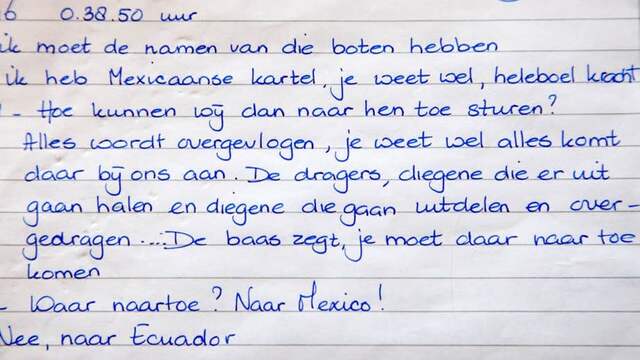 6 0.38.50 uur
ik moet de namen van die boten hebben
ik heb Mexicaanse kartel, je weet wel, heleboel kracht
- Hoe kunnen wij dan naar hen toe sturen?
Alles wordt overgevlogen, je weet wel alles komt
daar bij ons aan. De dragers, diegene die er uit
gaan halen en diegene die gaan uitdelen en over-
gedragen .... De baas zegt, je moet daar naar toe
komen
- Waar naartoe? Naar Mexico!
Nee, naar Ecuador